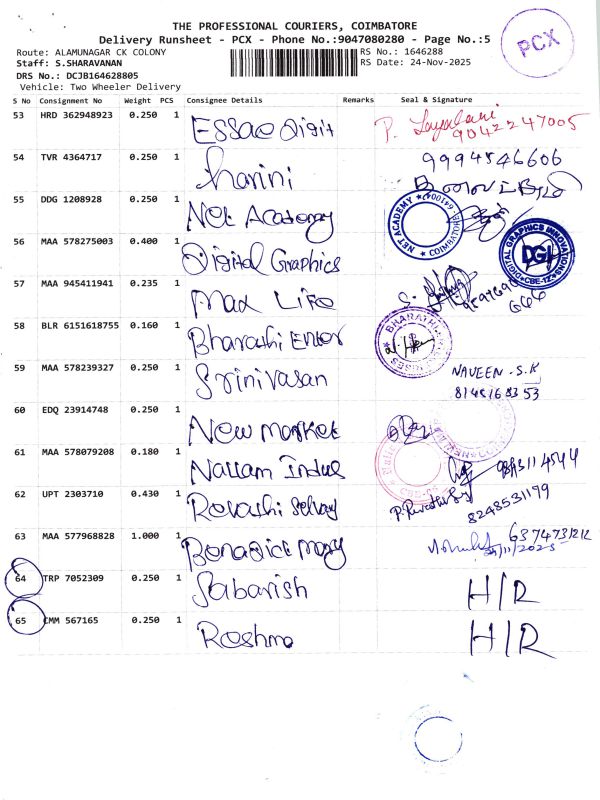 THE PROFESSIONAL COURIERS, COIMBATORE
Delivery Runsheet - PCX - Phone No.:9047080280 - Page No.:5
PCX
Route: ALAMUNAGAR CK COLONY RS No.: 1646288
Staff: S.SHARAVANAN RS Date: 24-Nov-2025
DRS No.: DCJB164628805
Vehicle: Two Wheeler Delivery
S No Consignment No Weight PCS Consignee Details Remarks Seal & Signature
53 HRD 362948923 0.250 1 Essae Digit
9042247005
54 TVR 4364717 0.250 1 harini 9994546606
55 DDG 1208928 0.250 1 Net Academy NET ACADEMY COIMBATORE
56 MAA 578275003 0.400 1 Digital Graphics DIGITAL GRAPHICS INNOVATIONS DGI CBE-12
57 MAA 945411941 0.235 1 Max Life
58 BLR 6151618755 0.160 1 Bharathi Enter BHARATHI
59 MAA 578239327 0.250 1 Srinivasan NAVEEN.S.K
60 EDQ 23914748 0.250 1 New Market
61 MAA 578079208 0.180 1 Nallam Indus
62 UPT 2303710 0.430 1 Revathi Selvay
8248531179
63 MAA 577968828 1.000 1 Benadict Mary
24/11/2025
64 TRP 7052309 0.250 1 Sabarish H/R
65 CMM 567165 0.250 1 Reshma H/R